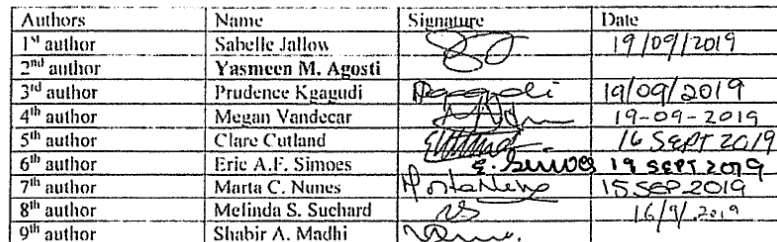 Authors Name Signature Date
1st author Sabelle Jallow 19/09/2019
2nd author Yasmeen M. Agosti
3rd author Prudence Kgagudi 19/09/2019
4th author Megan Vandecar 19-09-2019
5th author Clare Cutland 16 SEPT 2019
6th author Eric A.F. Simoes E. Simoes 19 SEPT 2019
7th author Marta C. Nunes 15 SEP 2019
8th author Melinda S. Suchard 16/9/2019
9th author Shabir A. Madhi